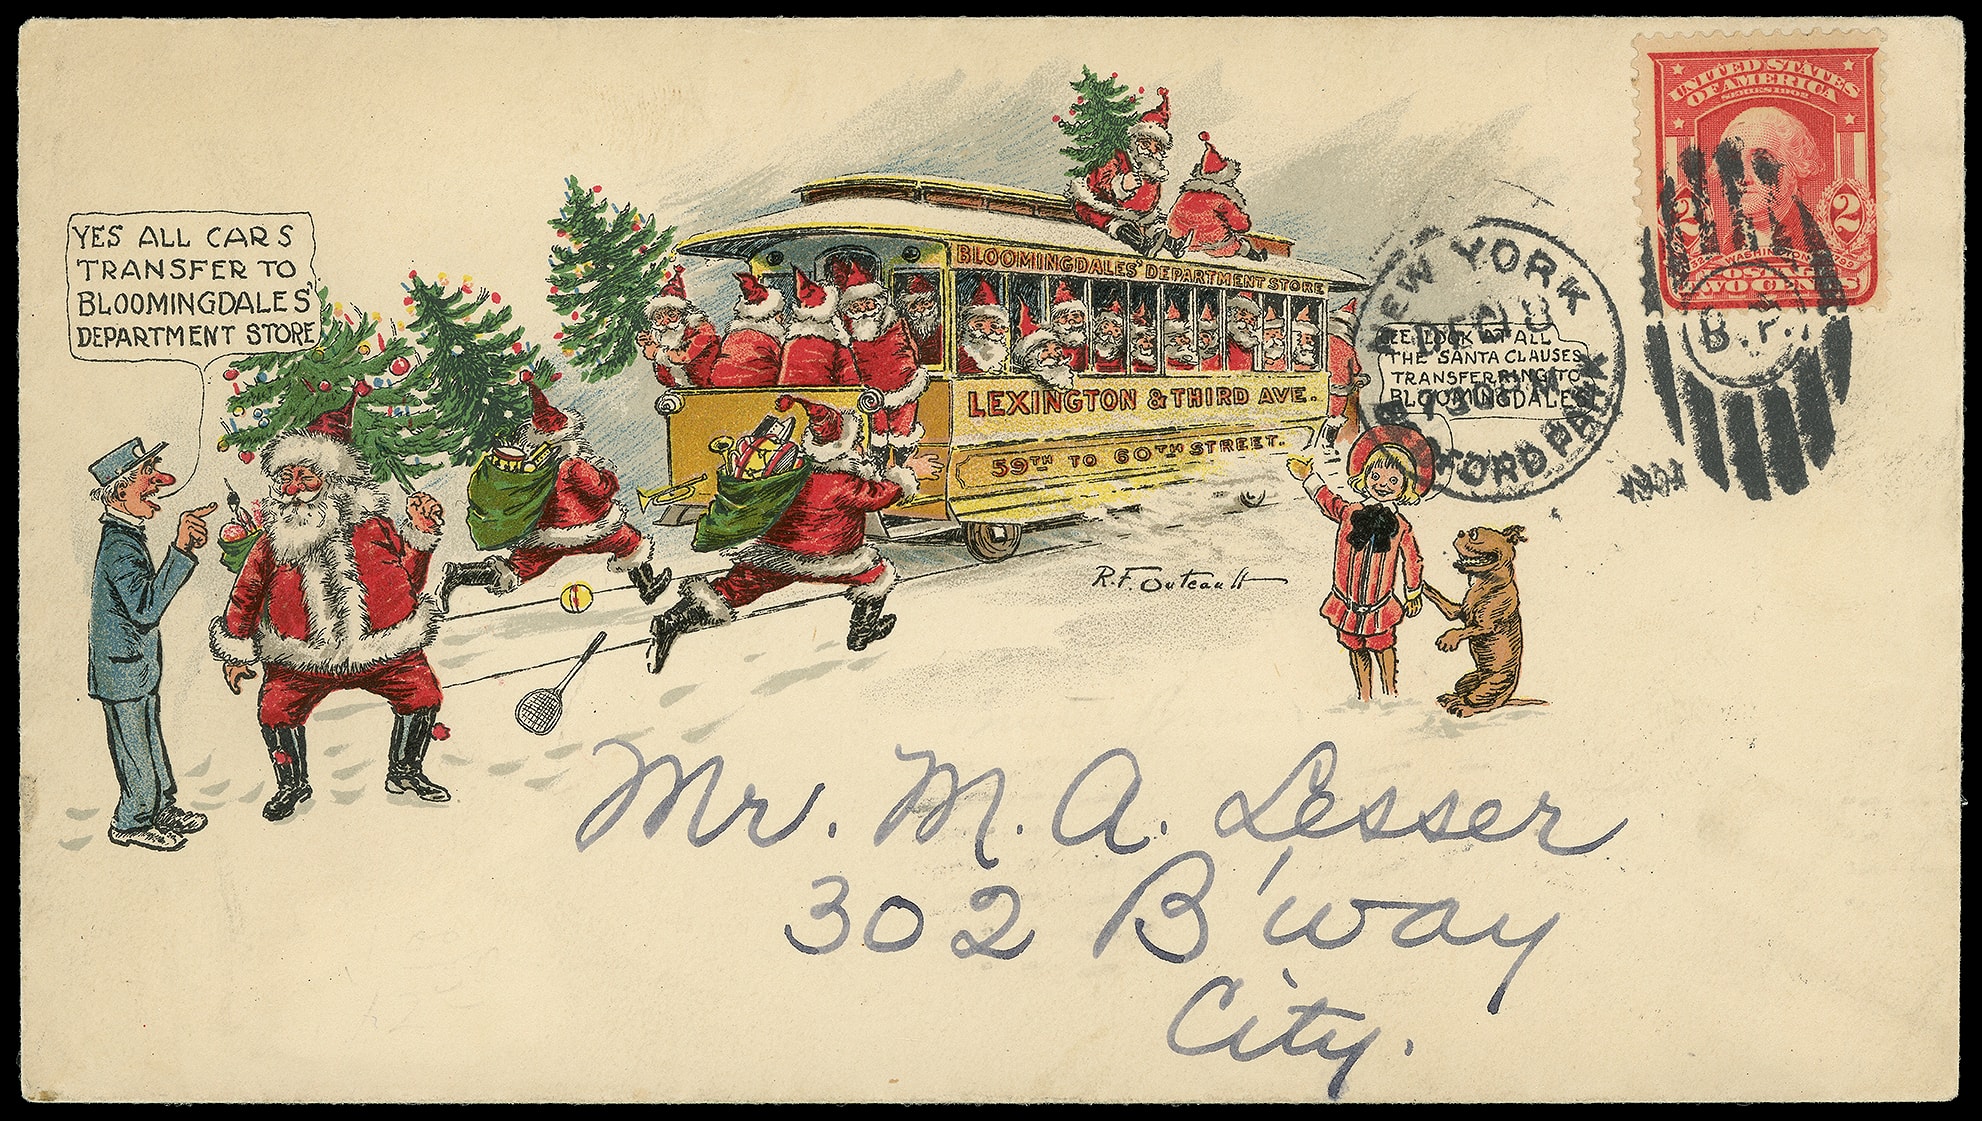 YES ALL CARS
TRANSFER TO
BLOOMINGDALES'
DEPARTMENT STORE
BLOOMINGDALES' DEPARTMENT STORE
LEXINGTON & THIRD AVE.
59TH TO 60TH STREET.
LOOK AT ALL
THE SANTA CLAUSES
TRANSFERRING TO
BLOOMINGDALES'
R.F. Outcault
NEW YORK
BEDFORD PARK
B.P.
UNITED STATES
OF AMERICA
SERIES 1902
2 2
WASHINGTON
POSTAGE
TWO CENTS
Mr. M. A. Lesser
302 B'way
City.